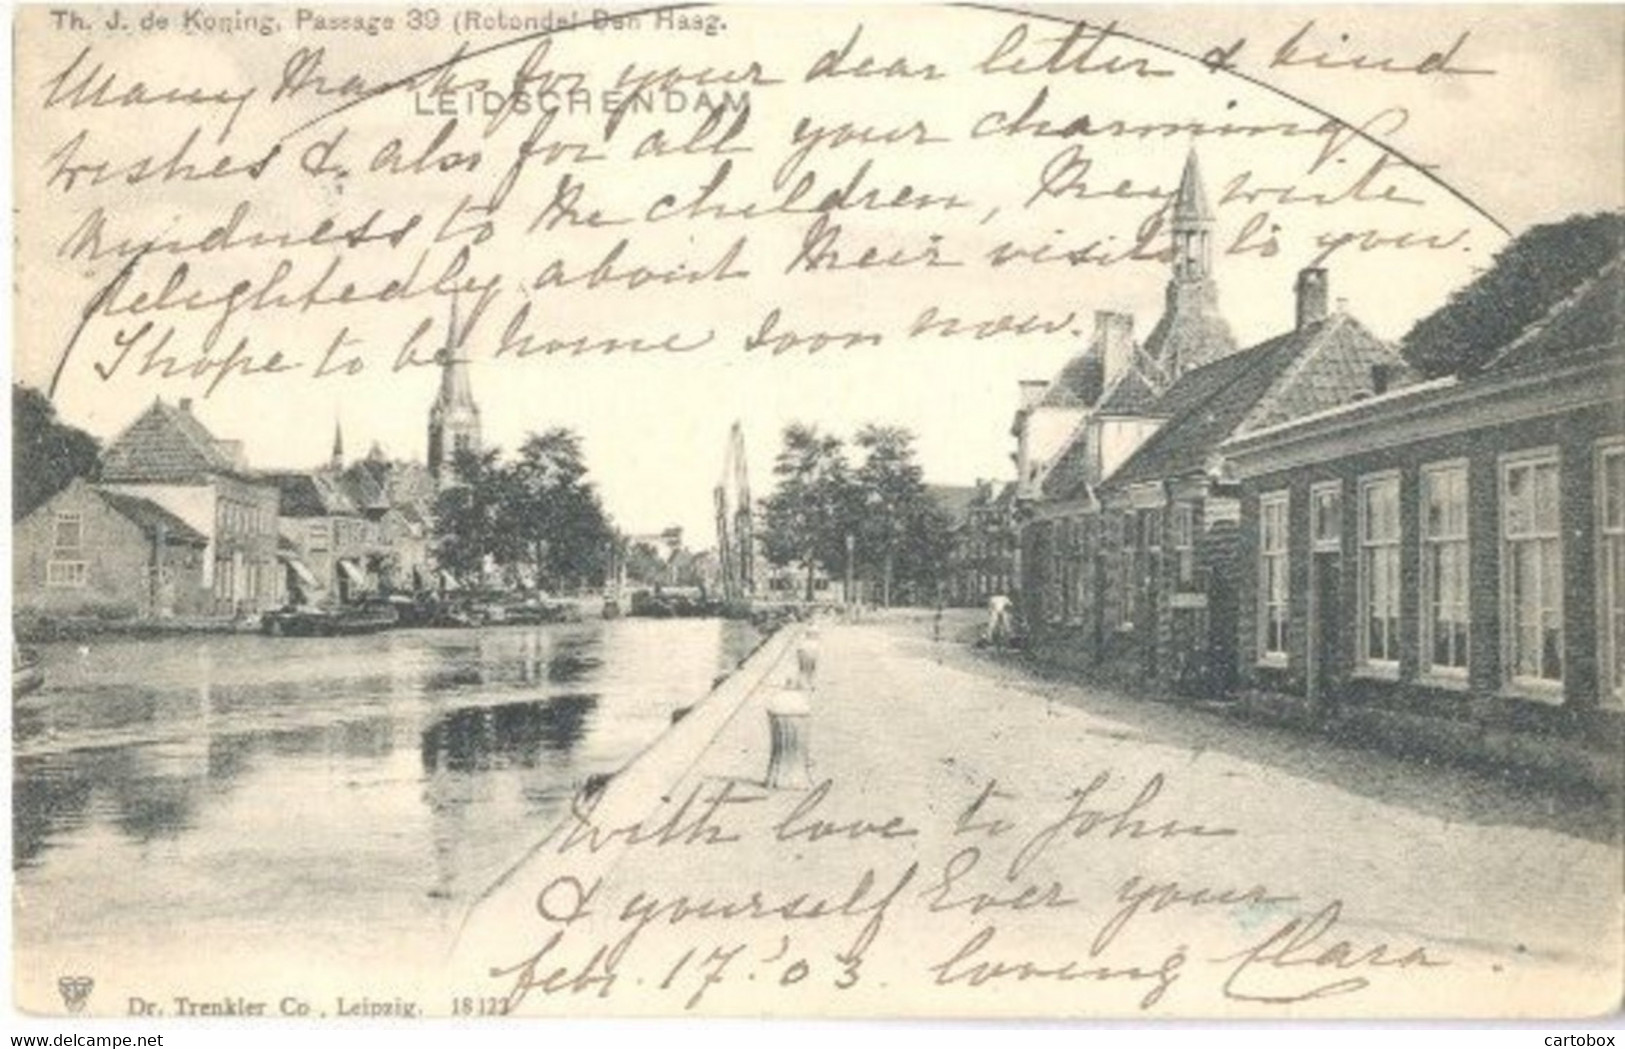 Th. J. de Koning, Passage 39 (Rotonde) Den Haag.
LEIDSCHENDAM
Many thanks for your dear letter & kind
wishes & also for all your charming
kindness to the children, they write
delightedly about their visits to you.
I hope to be home soon now.
With love to John
& yourself Ever your
febr. 17. '03. loving Clara.
Dr. Trenkler Co., Leipzig. 18123
www.delcampe.net
cartobox